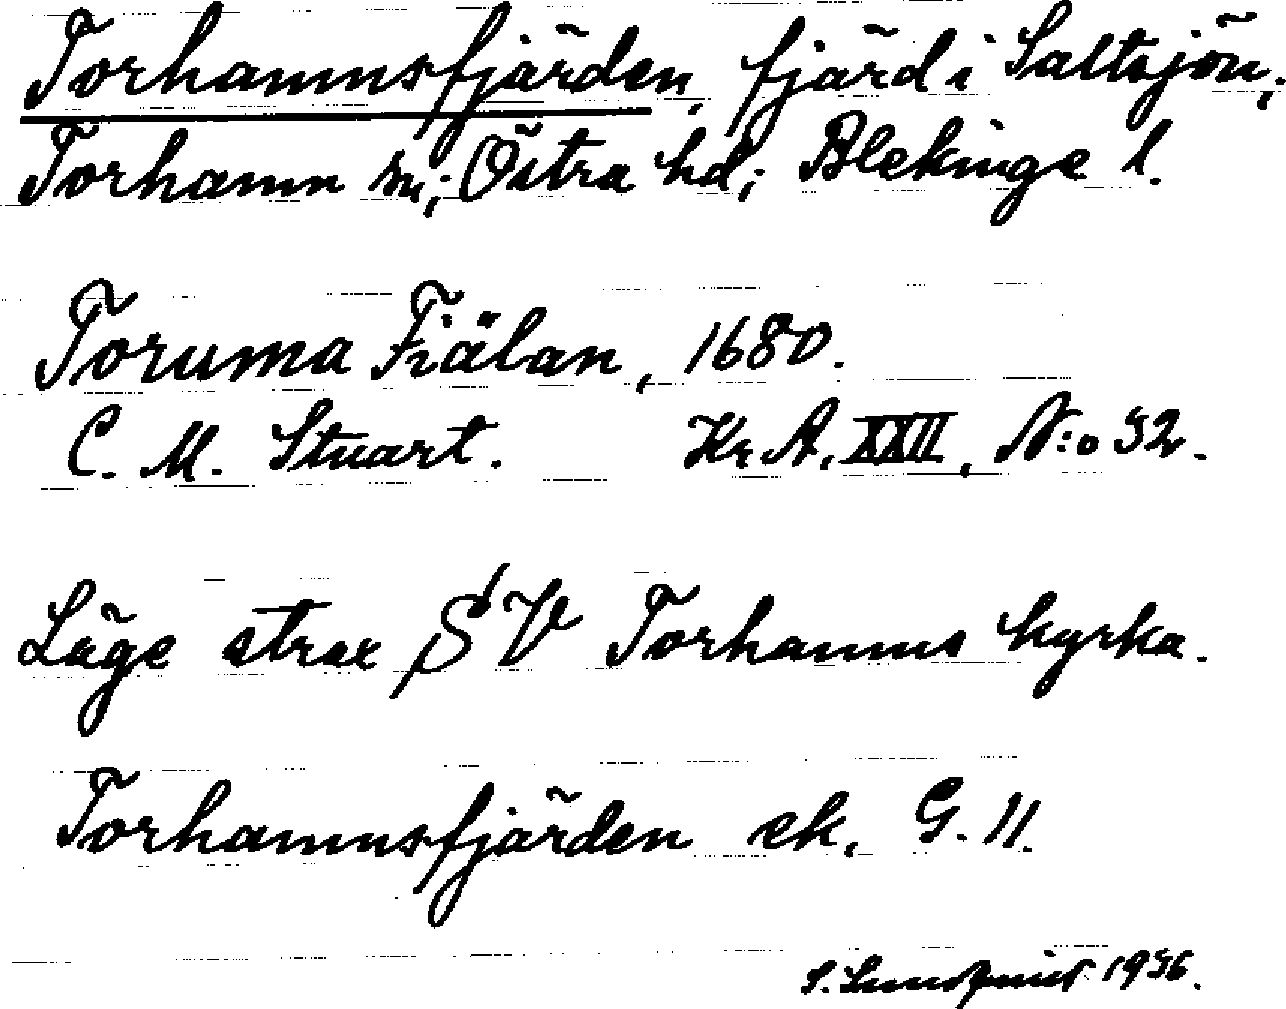 Torhamnsfjärden, fjärd i Saltsjön;
Torhamn sn; Östra hd; Blekinge l.
Toruma Fiälan, 1680.
C. M. Stuart. Kr. A. XXII, N:o 32.
Läge strax SV Torhamns kyrka.
Torhamnsfjärden ek. G. 11.
S. Lundquist 1936.